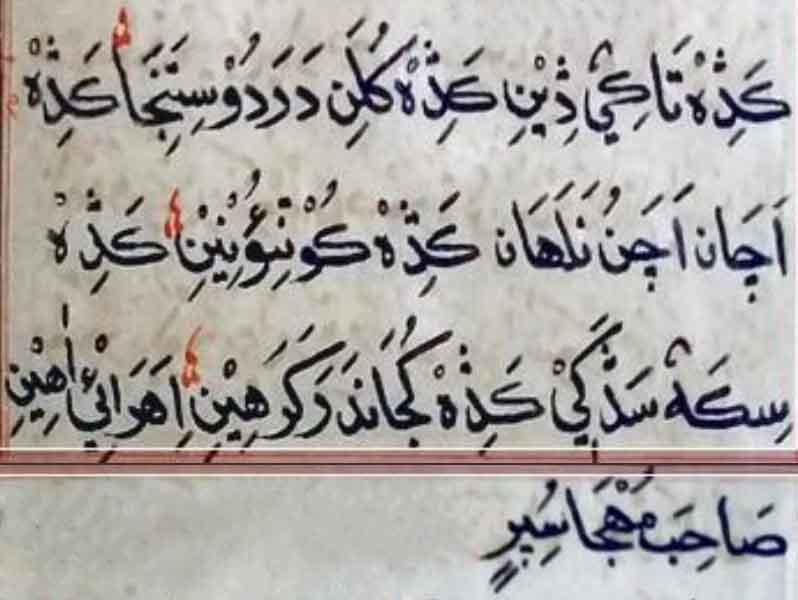 كَڎِهْ تَاكِيْ ڎِيْنِ كَڎِهْ كُلَنِ دَرَ دُوْسِتَنِجَا كَڎِهْ
اَچَان اَچَنُ نَلَهَان كَڎِهْ كُوْتِيؤنِيْنِ كَڎِهْ
سِكَهٗ سَڎَكِيْ كَڎِهْ كُجَانَدَرَ كَرَهِيْنِ اِهَرَائِيْ اٰهِيْنِ
صَاحِبَ مُهْجَا سُپِرِ